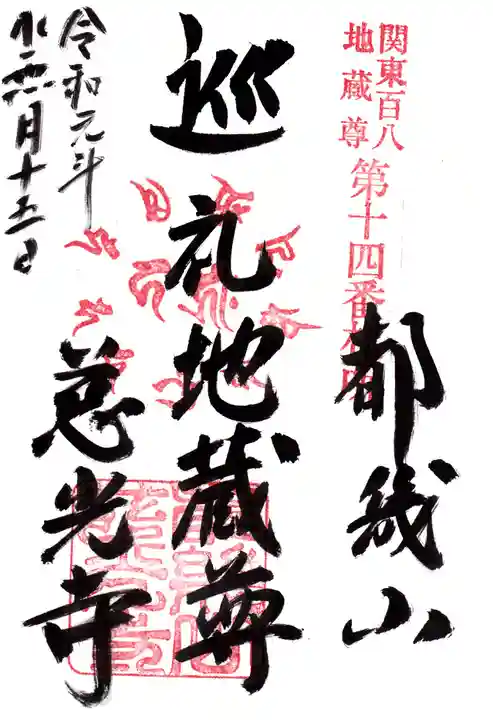 関東百八
地蔵尊
第十四番
都幾山
巡礼地蔵尊
慈光寺
令和元年
水無月十五日